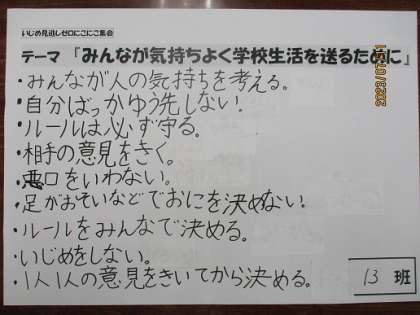 いじめ見逃しゼロにこにこ集会
テーマ『みんなが気持ちよく学校生活を送るために』
・みんなが人の気持ちを考える。
・自分ばっかゆう先しない。
・ルールは必ず守る。
・相手の意見をきく。
・悪口をいわない。
・足がおそいなどでおにを決めない。
・ルールをみんなで決める。
・いじめをしない。
・1人1人の意見をきいてから決める。
13 班